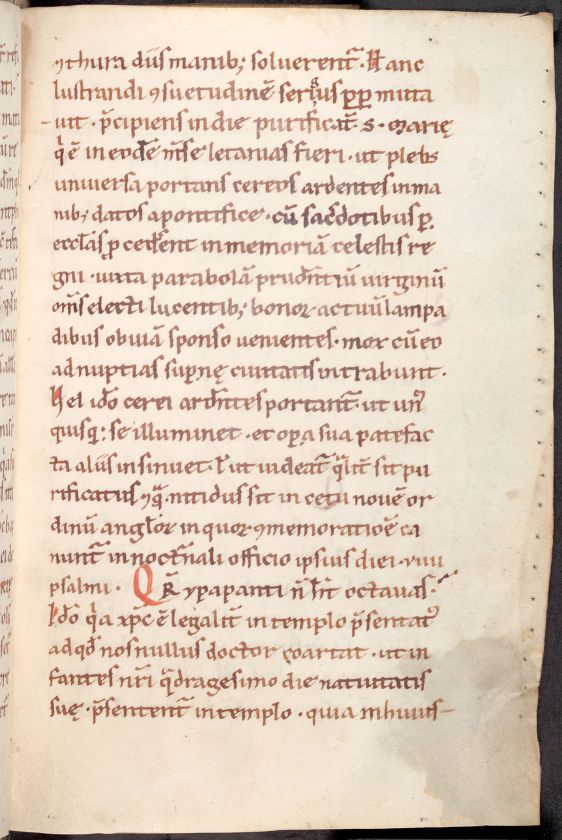 ⁊ thura diis manib; soluerent̄. Hanc
lustrandi ꝯsuetudinē sergius p̄p̄ mita
uit · p̄cipiens in die purificat̄ s · marię
q̄ ē in eodē m̄se letanias fieri · ut plebs
uniuersa portans cereos ardentes in ma
nib; datos a pontifice · cū sac̄dotibus ꝑ
eccl̄as ꝓcedent in memoriā celestis re
gni · iuxta parabolā prudn̄tiū uirginū
om̄s electi lucentib; bonoꝝ actuū lampa
dibus obuiā sponso uenientes · mox cū eo
ad nuptias sup̄nę ciuitatis intrabunt ·
Vel id̄o cerei ardn̄tes portant̄ · ut un'
quisq; se illuminet · et oꝑa sua patefac
ta aliis insinuet · ł ut uideat̄ q̄lit̄ sit pu
rificatus ⁊ q̄ nitidus sit in cetu nouē or
dinū angl̄oꝝ in quoꝝ ꝯmemoratiōē ca
nunt̄ in noct̄nali officio ipsius diei · viiii
psalmi · QR̄ ypapanti n̄ hn̄t octauas ·
Id̄o q̄a xp̄c ē legalit̄ in templo p̄sentat'
ad qd̄ nos nullus doctor coartat · ut in
fantes nr̄i q̄dragesimo die natiuitatis
suę · p̄sentent̄ in templo · quia in huius